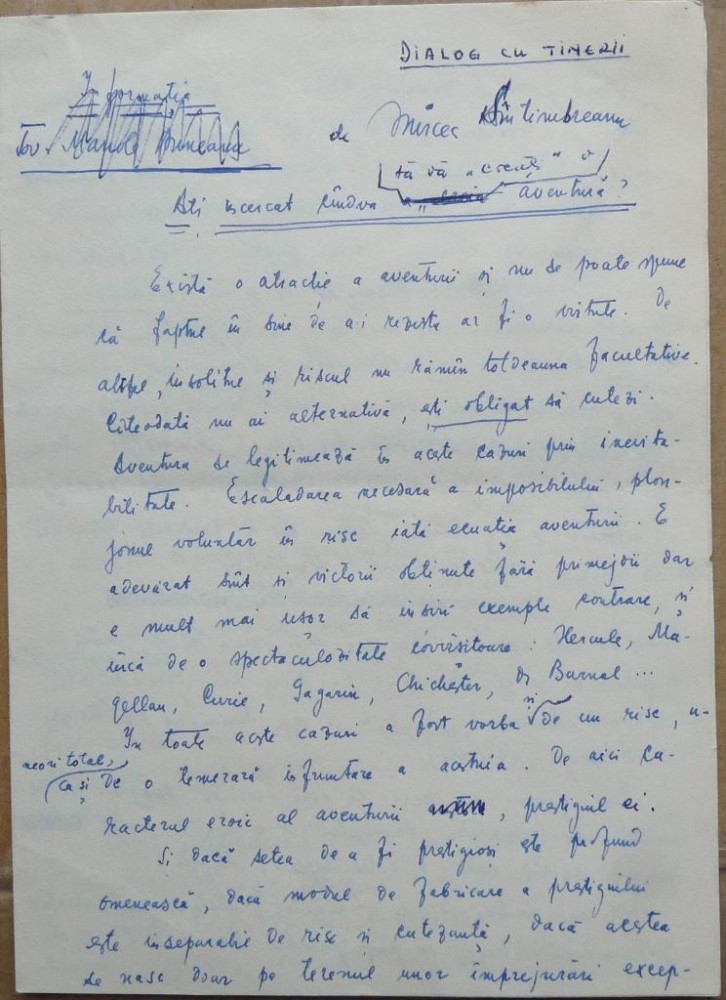 DIALOG CU TINERII
Informația
Tov.
de Mircea Sîntimbreanu
să vă „creați" o
Ați încercat cîndva aventură?
Există o atracție a aventurii și nu se poate spune
că faptul în sine de a-i rezista ar fi o virtute. De
altfel, insolitul și riscul nu rămîn totdeauna facultative.
Cîteodată nu ai alternativă, ești obligat să cutezi.
Aventura se legitimează în aceste cazuri prin inevita-
bilitate. Escaladarea necesară a imposibilului, plon-
jonul voluntar în risc iată ecuația aventurii. E
adevărat sînt și victorii obținute fără primejdii dar
e mult mai ușor să înșiri exemple contrare, și
încă de o spectaculozitate covîrșitoare: Hercule, Ma-
gellan, Curie, Gagarin, Chichester, dr Barnal...
În toate aceste cazuri a fost vorba și de un risc, u-
neori total,
ca și de o temerară înfruntare a acestuia. De aici ca-
racterul eroic al aventurii, prestigiul ei.
Și dacă setea de a fi prestigioși este profund
omenească, dacă modul de fabricare a prestigiului
este inseparabil de risc și cutezanță, dacă acestea
se nasc doar pe terenul unor împrejurări excep-